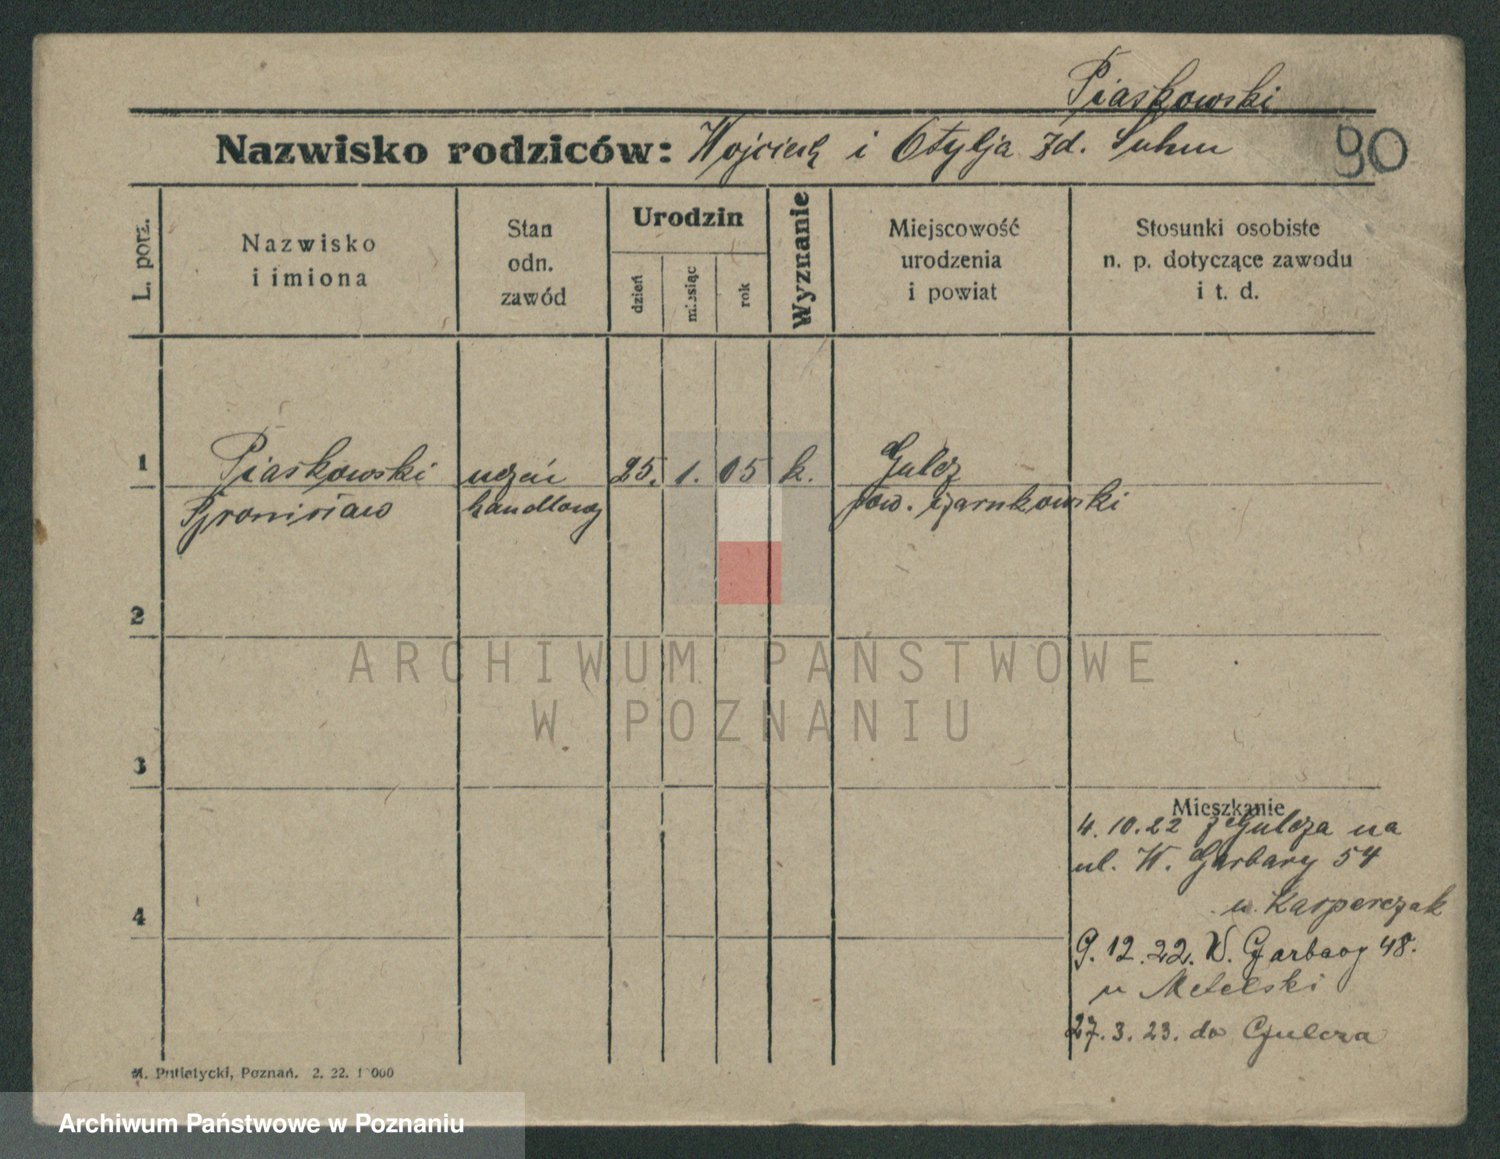 Piaskowski
Nazwisko rodziców: Wojciech i Otylja zd. Suhm
90
L. porz.
Nazwisko
i imiona
Stan
odn.
zawód
Urodzin
dzień
miesiąc
rok
Wyznanie
Miejscowość
urodzenia
i powiat
Stosunki osobiste
n. p. dotyczące zawodu
i t. d.
1 Piaskowski uczeń 25. 1. 05 k. Gulcz
Bronisław handlowy pow. czarnkowski
2
3
4
ARCHIWUM PAŃSTWOWE
W POZNANIU
Mieszkanie
4.10.22 z Gulcza na
ul. W. Garbary 54
u. Kasperczak
9.12.22. W. Garbary 48.
u Metelski
27.3.23. do Gulcza
M. Putiatycki, Poznań. 2. 22.
Archiwum Państwowe w Poznaniu